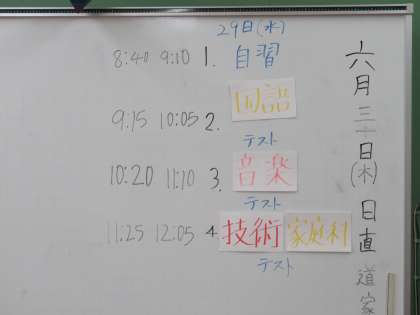 29日(水)
8:40 9:10 1. 自習
9:15 10:05 2. 国語
テスト
10:20 11:10 3. 音楽
テスト
11:25 12:05 4 技術 家庭科
テスト
六月三十日(木)日直 道家